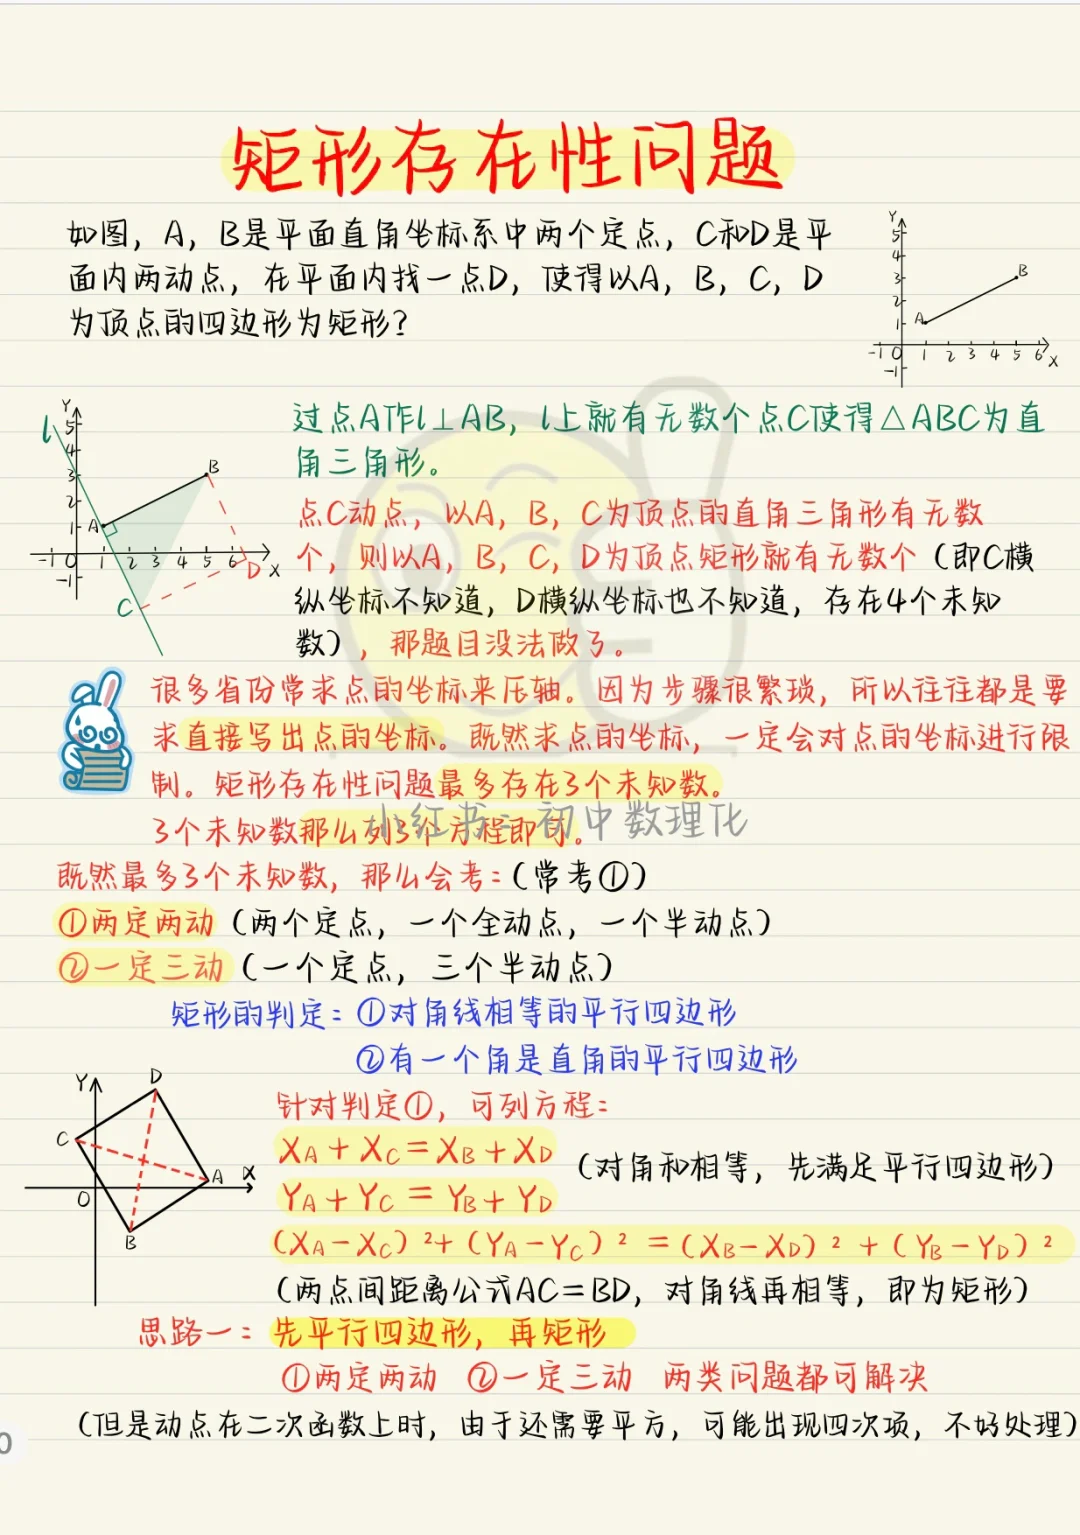 矩形存在性问题
如图，A，B是平面直角坐标系中两个定点，C和D是平
面内两动点，在平面内找一点D，使得以A，B，C，D
为顶点的四边形为矩形？
Y
5
4
3
2
1
-1 O 1 2 3 4 5 6 X
-1
A
B
l
Y
5
4
3
2
1
-1 O 1 2 3 4 5 6 X
-1
A
B
C
D
过点A作l⊥AB，l上就有无数个点C使得△ABC为直
角三角形。
点C动点，以A，B，C为顶点的直角三角形有无数
个，则以A，B，C，D为顶点矩形就有无数个（即C横
纵坐标不知道，D横纵坐标也不知道，存在4个未知
数），那题目没法做了。
很多省份常求点的坐标来压轴。因为步骤很繁琐，所以往往都是要
求直接写出点的坐标。既然求点的坐标，一定会对点的坐标进行限
制。矩形存在性问题最多存在3个未知数。
小红书：初中数理化
3个未知数那么列3个方程即可。
既然最多3个未知数，那么会考：（常考①）
①两定两动（两个定点，一个全动点，一个半动点）
②一定三动（一个定点，三个半动点）
矩形的判定：①对角线相等的平行四边形
②有一个角是直角的平行四边形
Y
D
C
A
X
O
B
针对判定①，可列方程：
XA+XC=XB+XD
（对角和相等，先满足平行四边形）
YA+YC=YB+YD
（XA-XC）²+（YA-YC）²=（XB-XD）²+（YB-YD）²
（两点间距离公式AC=BD，对角线再相等，即为矩形）
思路一：先平行四边形，再矩形
①两定两动 ②一定三动 两类问题都可解决
（但是动点在二次函数上时，由于还需要平方，可能出现四次项，不好处理）
0